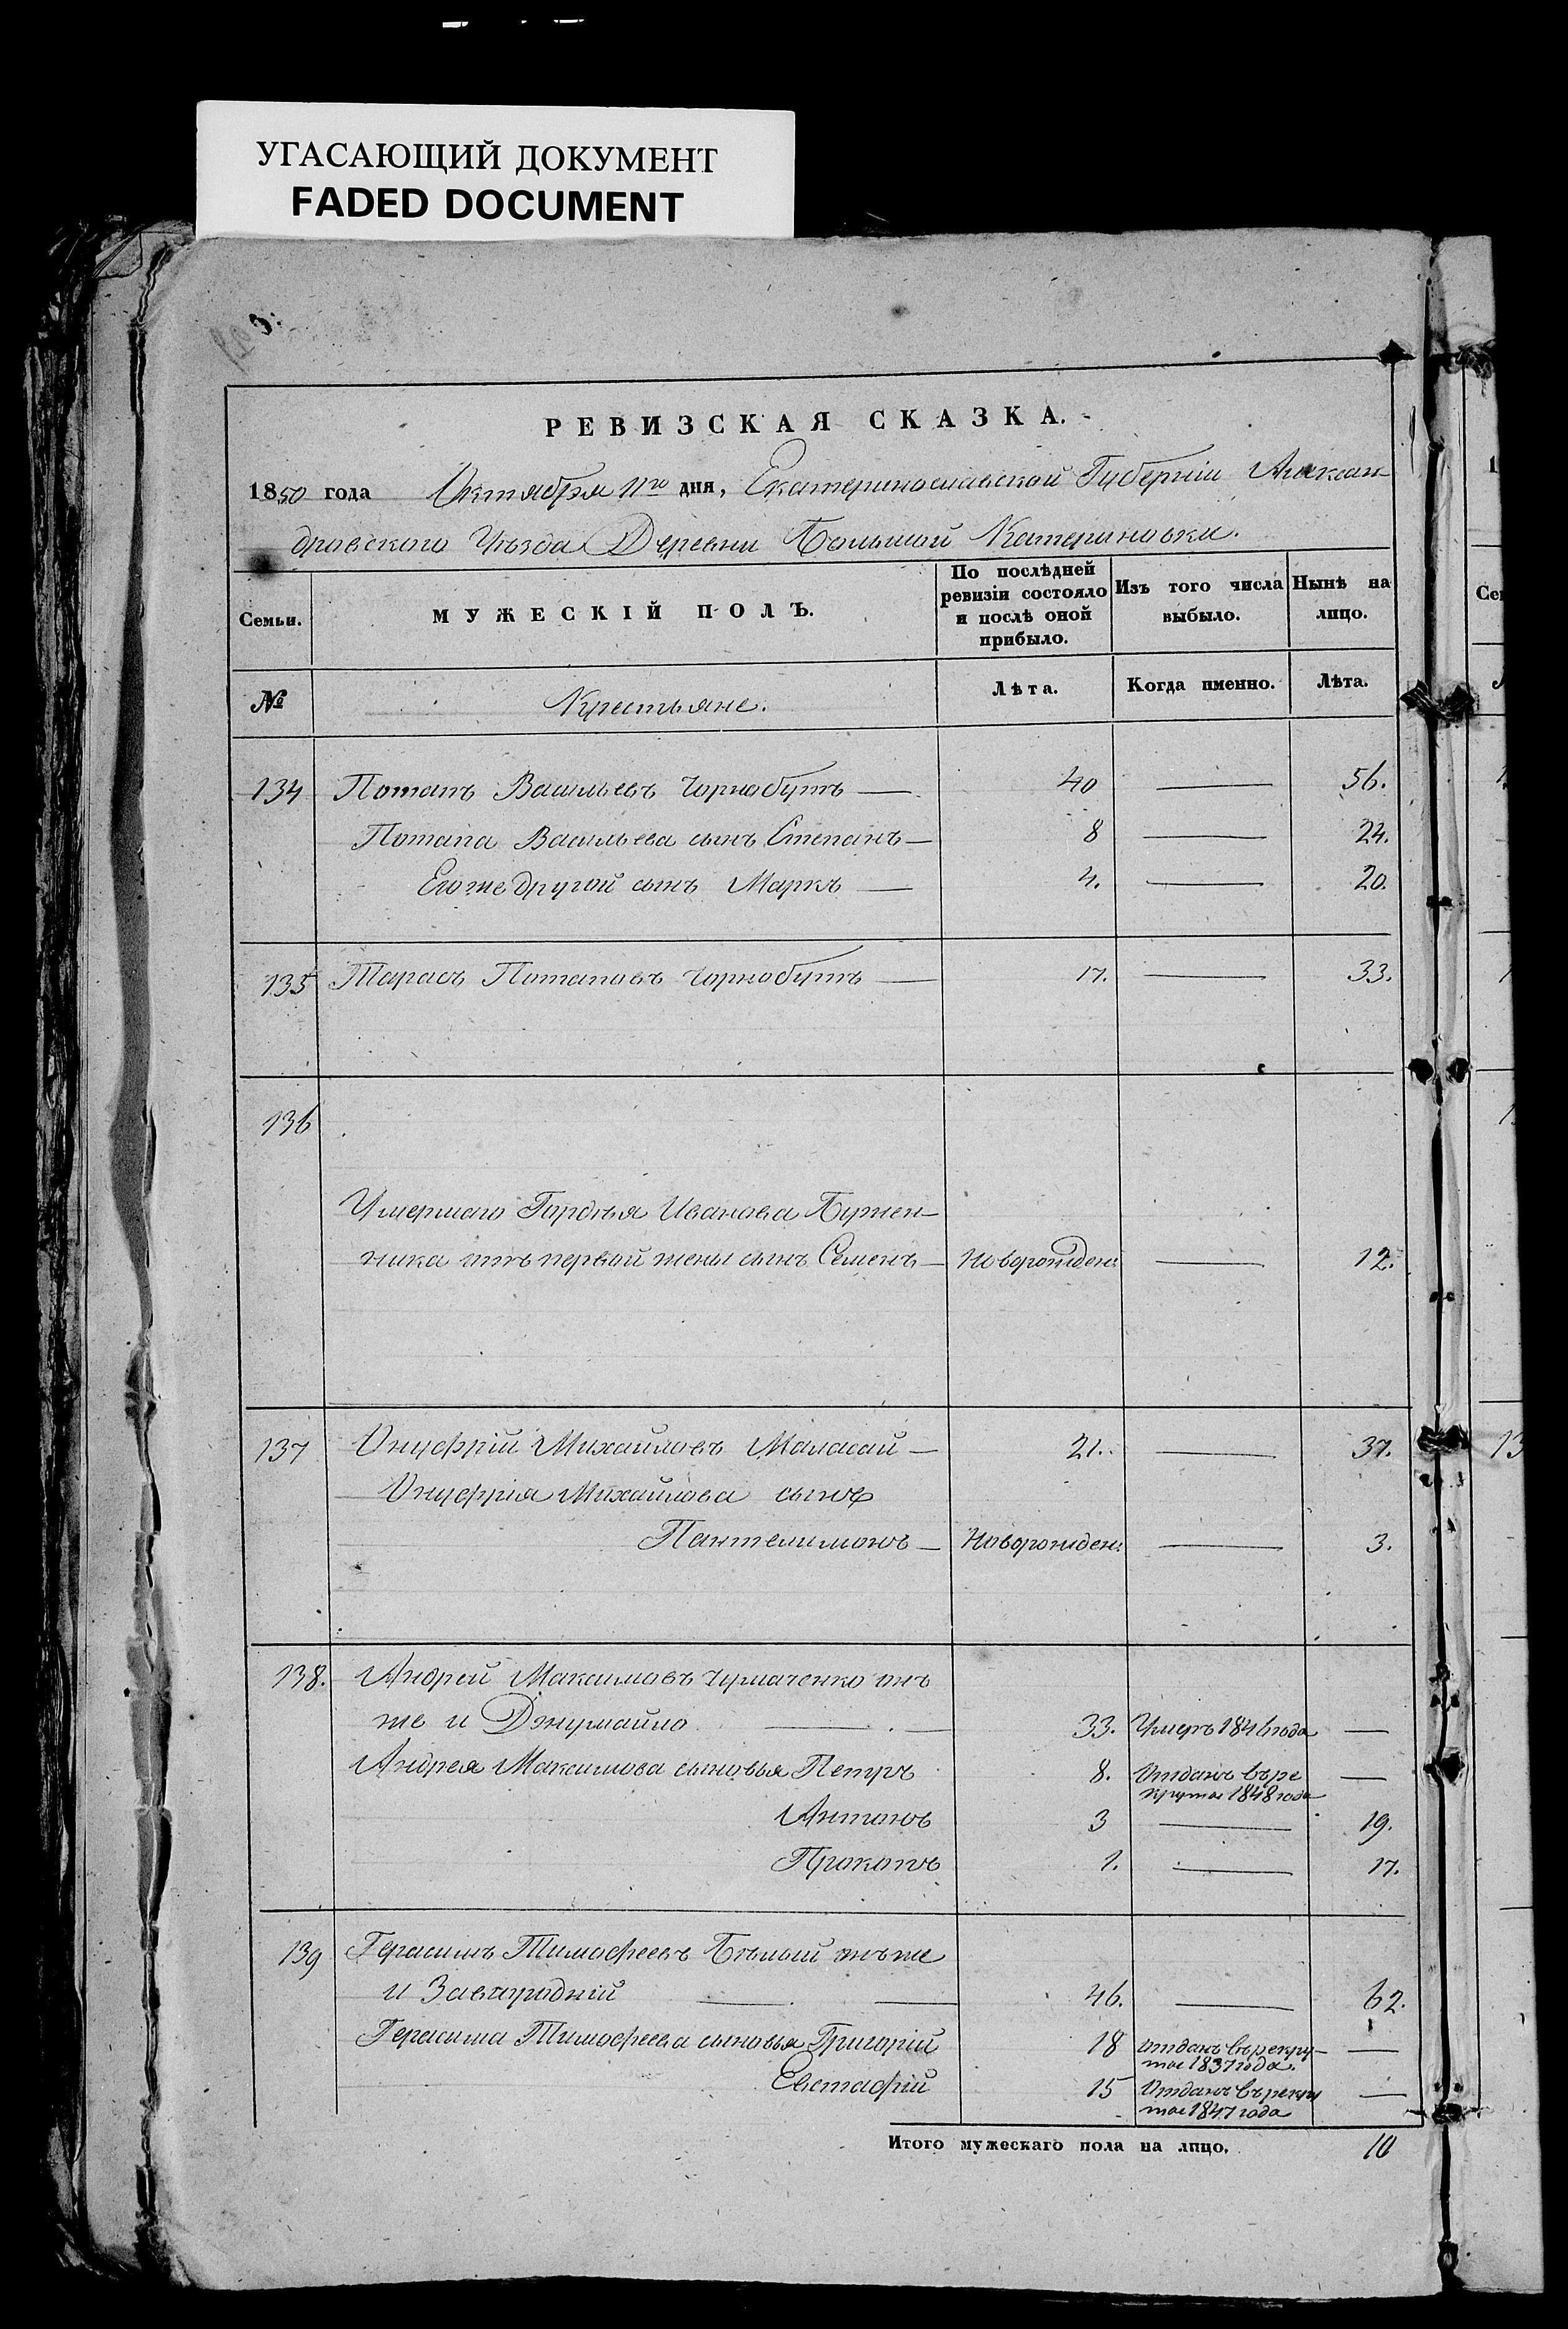 УГАСАЮЩИЙ ДОКУМЕНТ
FADED DOCUMENT
РЕВИЗСКАЯ СКАЗКА.
1850 года Октября 11го дня, Екатеринославской Губерніи Алексан-
дровского Уѣзда Деревни Большой Катериновки.
Семьи.
МУЖЕСКІЙ ПОЛЪ.
По послѣдней ревизіи состояло и послѣ оной прибыло.
Изъ того числа выбыло.
Нынѣ на лицо.
№ Крестьяне. Лѣта. Когда именно. Лѣта.
134 Потапъ Васильевъ Чорнобутъ — 40 — 56.
Потапа Васильева сынъ Степанъ — 8 — 24.
Его же другой сынъ Маркъ — 4. — 20.
135 Тарасъ Потаповъ Чорнобутъ — 17. — 33.
136
Умершаго Гордѣя Иванова Бужен-
ника отъ первой жены сынъ Семенъ — Новорожден: — 12.
137 Онуфрій Михайловъ Маласай — 21. — 37.
Онуфрія Михайлова сынъ
Пантелимонъ — Новорожден: — 3.
138. Андрей Максимовъ Чумаченко онъ
же и Джумайло — 33. Умеръ 1846 года —
Андрея Максимова сыновья Петръ 8. Отданъ въ ре
круты 1848 года —
Антонъ 3 — 19.
Прокопъ 1. — 17.
139 Герасимъ Тимофеевъ Бѣлый онъ же
и Завгородній — 46. — 62.
Герасима Тимофеева сыновья Григорій 18 отданъ въ рекру-
ты 1837 года. —
Евстафій 15 Отданъ въ рекру
ты 1847 года —
Итого мужескаго пола на лицо. 10